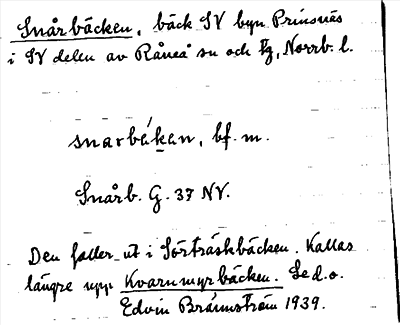 Snårbäcken, bäck SV byn Prinsnäs
i SV delen av Råneå sn och tg, Norrb. l.
snarbäkan, bf. m.
Snårb. G. 37 NV.
Den faller ut i Sörträskbäcken. Kallas
längre upp Kvarnmyrbäcken. Se d. o.
Edvin Brännström 1939.